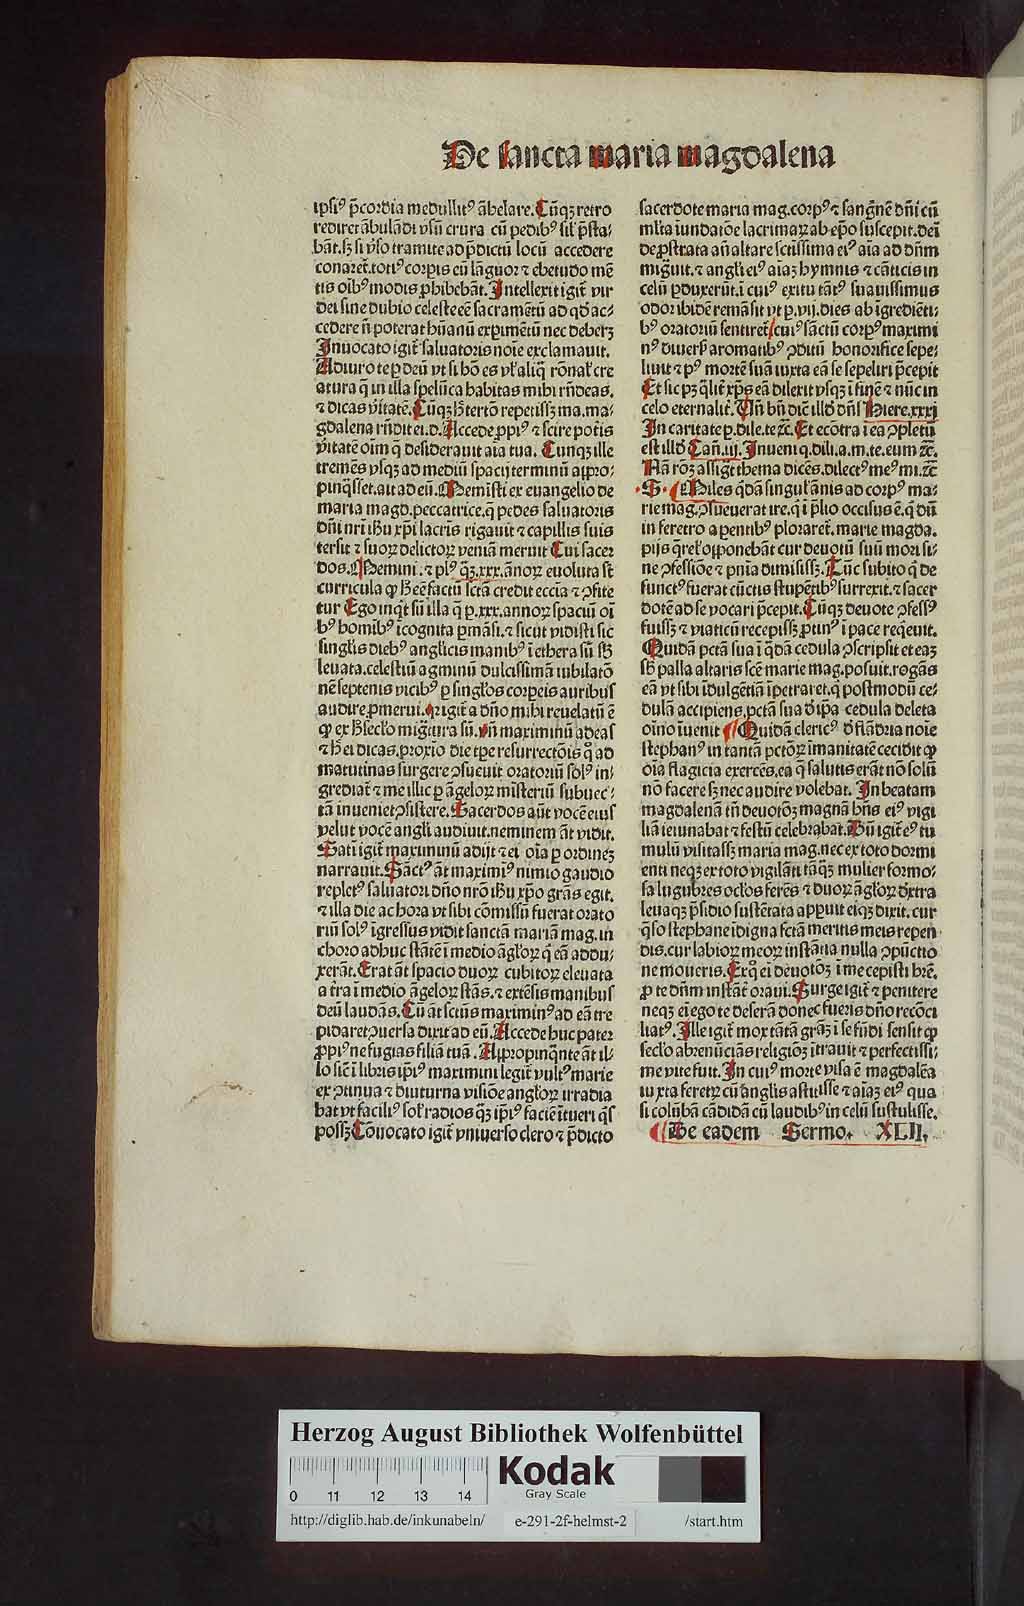 De sancta maria magdalena
ipsiꝰ p̄cordia medullitꝰ āhelare. Cūqꝫ retro
rediret ābulādi vsū crura cū pedibꝰ sil' p̄sta-
bāt. sꝫ si v̓so tramite ad p̄dictū locū accedere
conaret̄. totiꝰ corpis eū lāguor ⁊ ebetudo mē
tis oībꝰ modis ꝓhibebāt. Intellexit igit̄ vir
dei sine dubio celeste eē sacramētū ad qd̄ ac-
cedere n̄ poterat hūanū exꝑimētū nec deberꝫ
Inuocato igit̄ saluatoris noīe exclamauit.
Adiuro te ꝑ deū vt si hō es vl' aliq̄ rōnal' cre
atura q̄ in illa spelūca habitas mihi rn̄deas.
⁊ dicas v̓itatē. Cūqꝫ h̓ tertō repetissꝫ ma. ma-
gdalena rn̄dit ei. d. Accede ꝓpiꝰ ⁊ scire potis
v̓itatē oīm q̄ desiderauit aīa tua. Cunqꝫ ille
tremēs vsqꝫ ad mediū spacij terminū aꝓpro-
pinq̄sset. ait ad eū. Memīsti ex euangelio de
maria magd. peccatrice. q̄ pedes saluatoris
dn̄i nr̄i ihū xp̄i lacrīs rigauit ⁊ capillis suis
tersit ⁊ suoꝝ delictoꝝ veniā meruit Cui sacer
dos. Memini. ⁊ plꝰ q̄ꝫ. xxx. ānoꝝ euoluta st̄
curricula ꝙ h̓ eē factū scta credit eccīa ⁊ ꝯfite
tur Ego inq̄t sū illa q̄ ꝑ. xxx. annoꝝ spaciū oī
bꝰ homībꝰ īcognita ꝑmāsi. ⁊ sicut vidisti sic
singlis diebꝰ anglicis manibꝰ ī ethera sū sb̓
leuata. celestiū agminū dulcissimā iubilatō
nē septenis vicibꝰ ꝑ singlos corpeis auribus
audire ꝓmerui. q̓ igit̄ a dn̄o mihi reuelatū ē
ꝙ ex h̓ seclo migtura sū. vn̄ maximinū adeas
⁊ h̓ ei dicas. proxīo die tpe resurrectōis q̄ ad
matutinas surgere ꝯsueuit oratoriū solꝰ in-
grediat̄ ⁊ me illic ꝑ āgeloꝝ misteriū subuec-
tā inueniet ꝯsistere. Sacerdos aūt vocē eius
velut vocē angli audiuit. neminem āt vidit.
Satī igit̄ maximinū adijt ⁊ ei oīa ꝑ ordineꝫ
narrauit. Sāctꝰ āt maximīꝰ nimio gaudio
repletꝰ saluatori dn̄o nrō ihū xp̄o grās egit.
⁊ illa die ac hora vt sibi cōmissū fuerat orato
riū solꝰ īgressus vidit sanctā mariā mag. in
choro adhuc stātē ī medio āgloꝝ q̄ eā addu-
xerāt. Erat āt spacio duoꝝ cubitoꝝ eleuata
a tra ī medio āgeloꝝ stās. ⁊ extēsis manibus
deū laudās. Cū āt sctūs maximinꝰ ad eā tre
pidaret ꝯuersa dixit ad eū. Accede huc pater
ꝓpiꝰ ne fugias filiā tuā. Aꝓpropinq̄nte āt il-
lo siē ī libris ip̄iꝰ maximini legit̄ vultꝰ marie
ex ꝯtinua ⁊ diuturna visiōe angloꝝ irradia
bat vt faciliꝰ sol' radios q̄ꝫ ip̄iꝰ faciē ītueri q̄s
possꝫ Conuocato igit̄ vniuerso clero ⁊ p̄dicto
sacerdote maria mag. corpꝰ ⁊ sangnē dn̄i cū
ml̄ta īundatōe lacrimaꝝ ab ep̄o suscepit. dein
de ꝓstrata añ altare sctissima eiꝰ aīa ad dn̄m
migᷓuit. ⁊ angli eiꝰ aīaꝫ hymnis ⁊ cāticis in
celū ꝓduxerūt. ī cuiꝰ exitu tātꝰ suauissimus
odor ibidē remāsit vt ꝑ. vij. dies ab īgrediēti-
bꝰ oratoriū sentiret̄. cuiꝰ sanctū corpꝰ maximi
nꝰ diuers̄ aromatibꝰ ꝯditū honorifice sepe-
liuit ⁊ pꝰ mortē suā iuxta eā se sepeliri p̄cepit
Et sic pꝫ q̄lit̄ xp̄s eā dilexit vsqꝫ ī finē ⁊ nūc in
celo eternalit̄. Vn̄ bn̄ dic̄ illd̓ dn̄s Hiere. xxxj
In caritate ꝑ. dile. te ⁊c̄. Et ecōtra ī ea ꝯpletū
est illd̓ Cañ. iij. Inueni q. dili. a. m. te. eum ⁊c̄.
Nā rōꝫ assigᷓt thema dicēs. dilectꝰ meꝰ mi. ⁊c̄
S. Miles q̄dā singul' ānis ad corpꝰ ma-
rie mag. ꝯsueuerat ire. q̄ ī p̄lio occisus ē. q̄ dū
in feretro a pentibꝰ ploraret̄. marie magda.
pijs q̄rel' oꝓponebāt cur deuotū suū mori si-
ne ꝯfessiōe ⁊ pnīa dimisissꝫ. Tūc subito q̄ de
functꝰ fuerat cūctis stupētibꝰ surrexit. ⁊ sacer
dotē ad se vocari p̄cepit. Cūqꝫ deuote ꝯfessꝰ
fuissꝫ ⁊ viaticū recepissꝫ ꝓtinꝰ ī pace req̄euit.
Quidā pctā sua ī q̄dā cedula ꝯscripsit et eaꝫ
sb̓ palla altaris scē marie mag. posuit. rogās
eā vt sibi īdulgētiā īpetraret. q̄ postmodū ce-
dulā accipiens. pctā sua d̓ ip̄a cedula deleta
oīno īuenit Quidā clericꝰ d̓ flādria noīe
stephanꝰ in tantā pctōꝝ īmanitatē cecidit ꝙ
oīa flagicia exercēs. ea q̄ salutis erāt nō solū
nō facere sꝫ nec audire volebat. In beatam
magdalenā tn̄ deuotōꝫ magnā hn̄s eiꝰ vigi
liā ieiunabat ⁊ festū celebrabat. Dū igit̄ eꝰ tu
mulū visitassꝫ maria mag. nec ex toto dormi
enti neqꝫ ex toto vigilāti tāq̄ꝫ mulier formo-
sa lugubres oclos ferēs ⁊ duoꝝ āgloꝝ dextra
leuaqꝫ p̄sidio sustētata apꝑuit eiqꝫ dixit. cur
q̄so stephane īdigna fctā meritis meis repen
dis. cur labioꝝ meoꝝ instātia nulla ꝯpūctio
ne moueris. Ex q̄ ei deuotōꝫ ī me cepisti hr̄e.
ꝑ te dn̄m instāt̄ oraui. Surge igit̄ ⁊ penitere
neqꝫ ei ego te deserā donec fueris dn̄o recōci
liatꝰ. Ille igit̄ mox tātā grāꝫ ī se fūdi sensit ꝙ
seclo abrenūciās religiōꝫ ītrauit ⁊ perfectissi-
me vite fuit. In cuiꝰ morte visa ē magdalēa
iuxta feretꝝ cū ānglis astitisse ⁊ aīaꝫ eiꝰ qua
si colūbā cādidā cū laudibꝰ in celū sustulisse.
De eadem Sermo. XLII.
Herzog August Bibliothek Wolfenbüttel
0 11 12 13 14
Kodak
Gray Scale
http://diglib.hab.de/inkunabeln/ e-291-2f-helmst-2 /start.htm